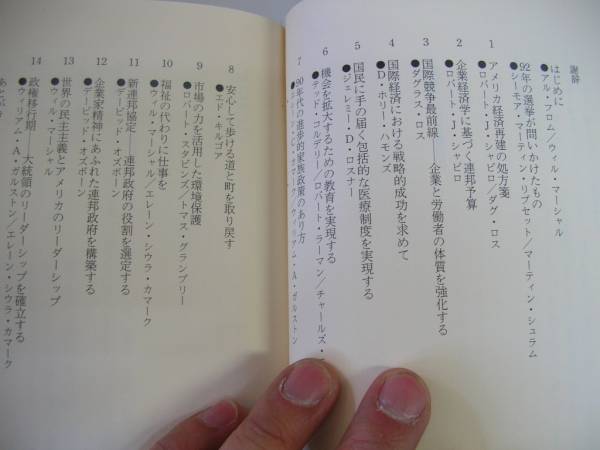 謝辞
はじめに
●アル・フロム／ウィル・マーシャル
92年の選挙が問いかけたもの
●シーモア マーティン・リプセット／マーティン・シュラム
1 アメリカ経済再建の処方箋
●ロバート・J・シャピロ／ダグ・ロス
2 企業経済学に基づく連邦予算
●ロバート・J・シャピロ
3 国際競争最前線――企業と労働者の体質を強化する
●ダグラス・ロス
4 国際経済における戦略的成功を求めて
●D・ホリー・ハモンズ
5 国民に手の届く包括的な医療制度を実現する
●ジェレミー・D・ロスナー
6 機会を拡大するための教育を実現する
●テッド・コルデリー／ロバート・ラーマン／チャールズ・
7 90年代の進歩的家族政策のあり方
カマーク／ウィリアム・A・ガルストン
8 安心して歩ける道と町を取り戻す
●エド・キルゴア
9 市場の力を活用した環境保護
●ロバート・スタビンズ／トマス・グランブリー
10 福祉の代わりに仕事を
●ウィル・マーシャル／エレーン・シウラ・カマーク
11 新連邦協定――連邦政府の役割を選定する
●デービッド・オズボーン
12 企業家精神にあふれた連邦政府を構築する
●デービッド・オズボーン
13 世界の民主主義とアメリカのリーダーシップ
●ウィル・マーシャル
14 政権移行期――大統領のリーダーシップを確立する
●ウィリアム・A・ガルストン／エレーン・シウラ・カマーク
あとがき